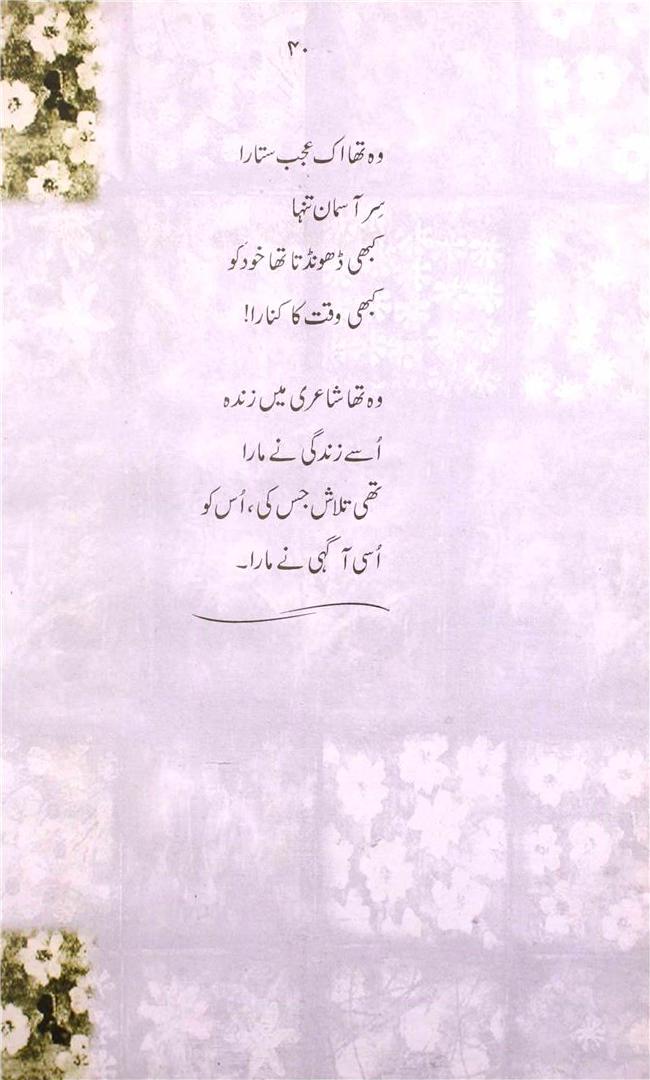 ۴۰
وہ تھا اک عجب ستارا
سِرِ آسمان تنہا
کبھی ڈھونڈتا تھا خود کو
کبھی وقت کا کنارا!
وہ تھا شاعری میں زندہ
اُسے زندگی نے مارا
تھی تلاش جس کی، اُس کو
اُسی آگہی نے مارا۔